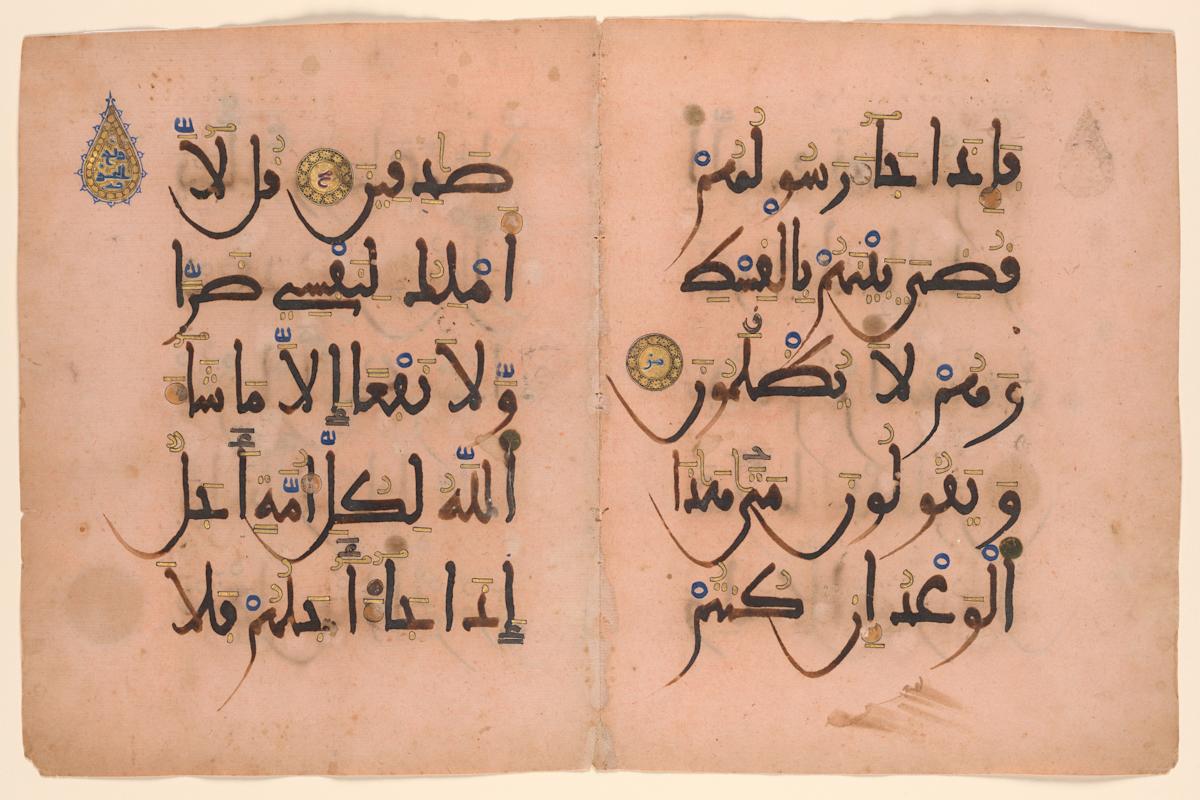 فإذا جاء رسولهم
قضى بينهم بالقسط
وهم لا يظلمون مز
ويقولون متى هذا
الوعد إن كنتم
صدقين قل لا
أملك لنفسي ضرا
ولا نفعا إلا ما شاء
الله لكل أمة أجل
إذا جاء أجلهم فلا